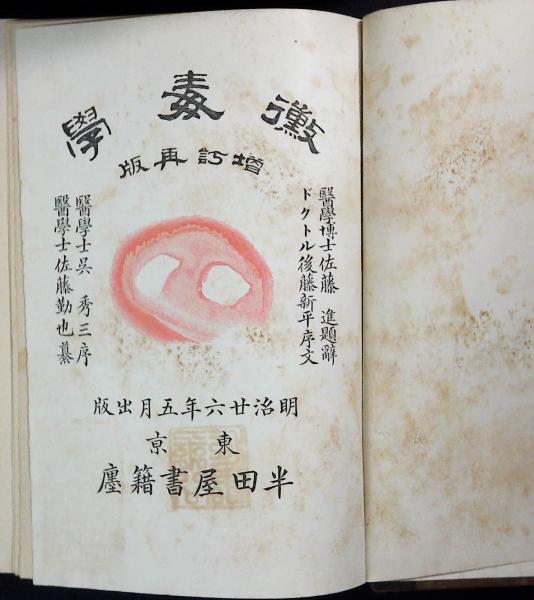 黴毒學
増訂再版
醫學博士佐藤進題辭
ドクトル後藤新平序文
醫學士呉秀三序
醫學士佐藤勤也纂
明治廿六年五月出版
東京
半田屋書籍廛